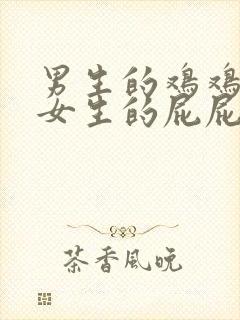 男生的鸡鸡
女生的屁屁
茶香风晚